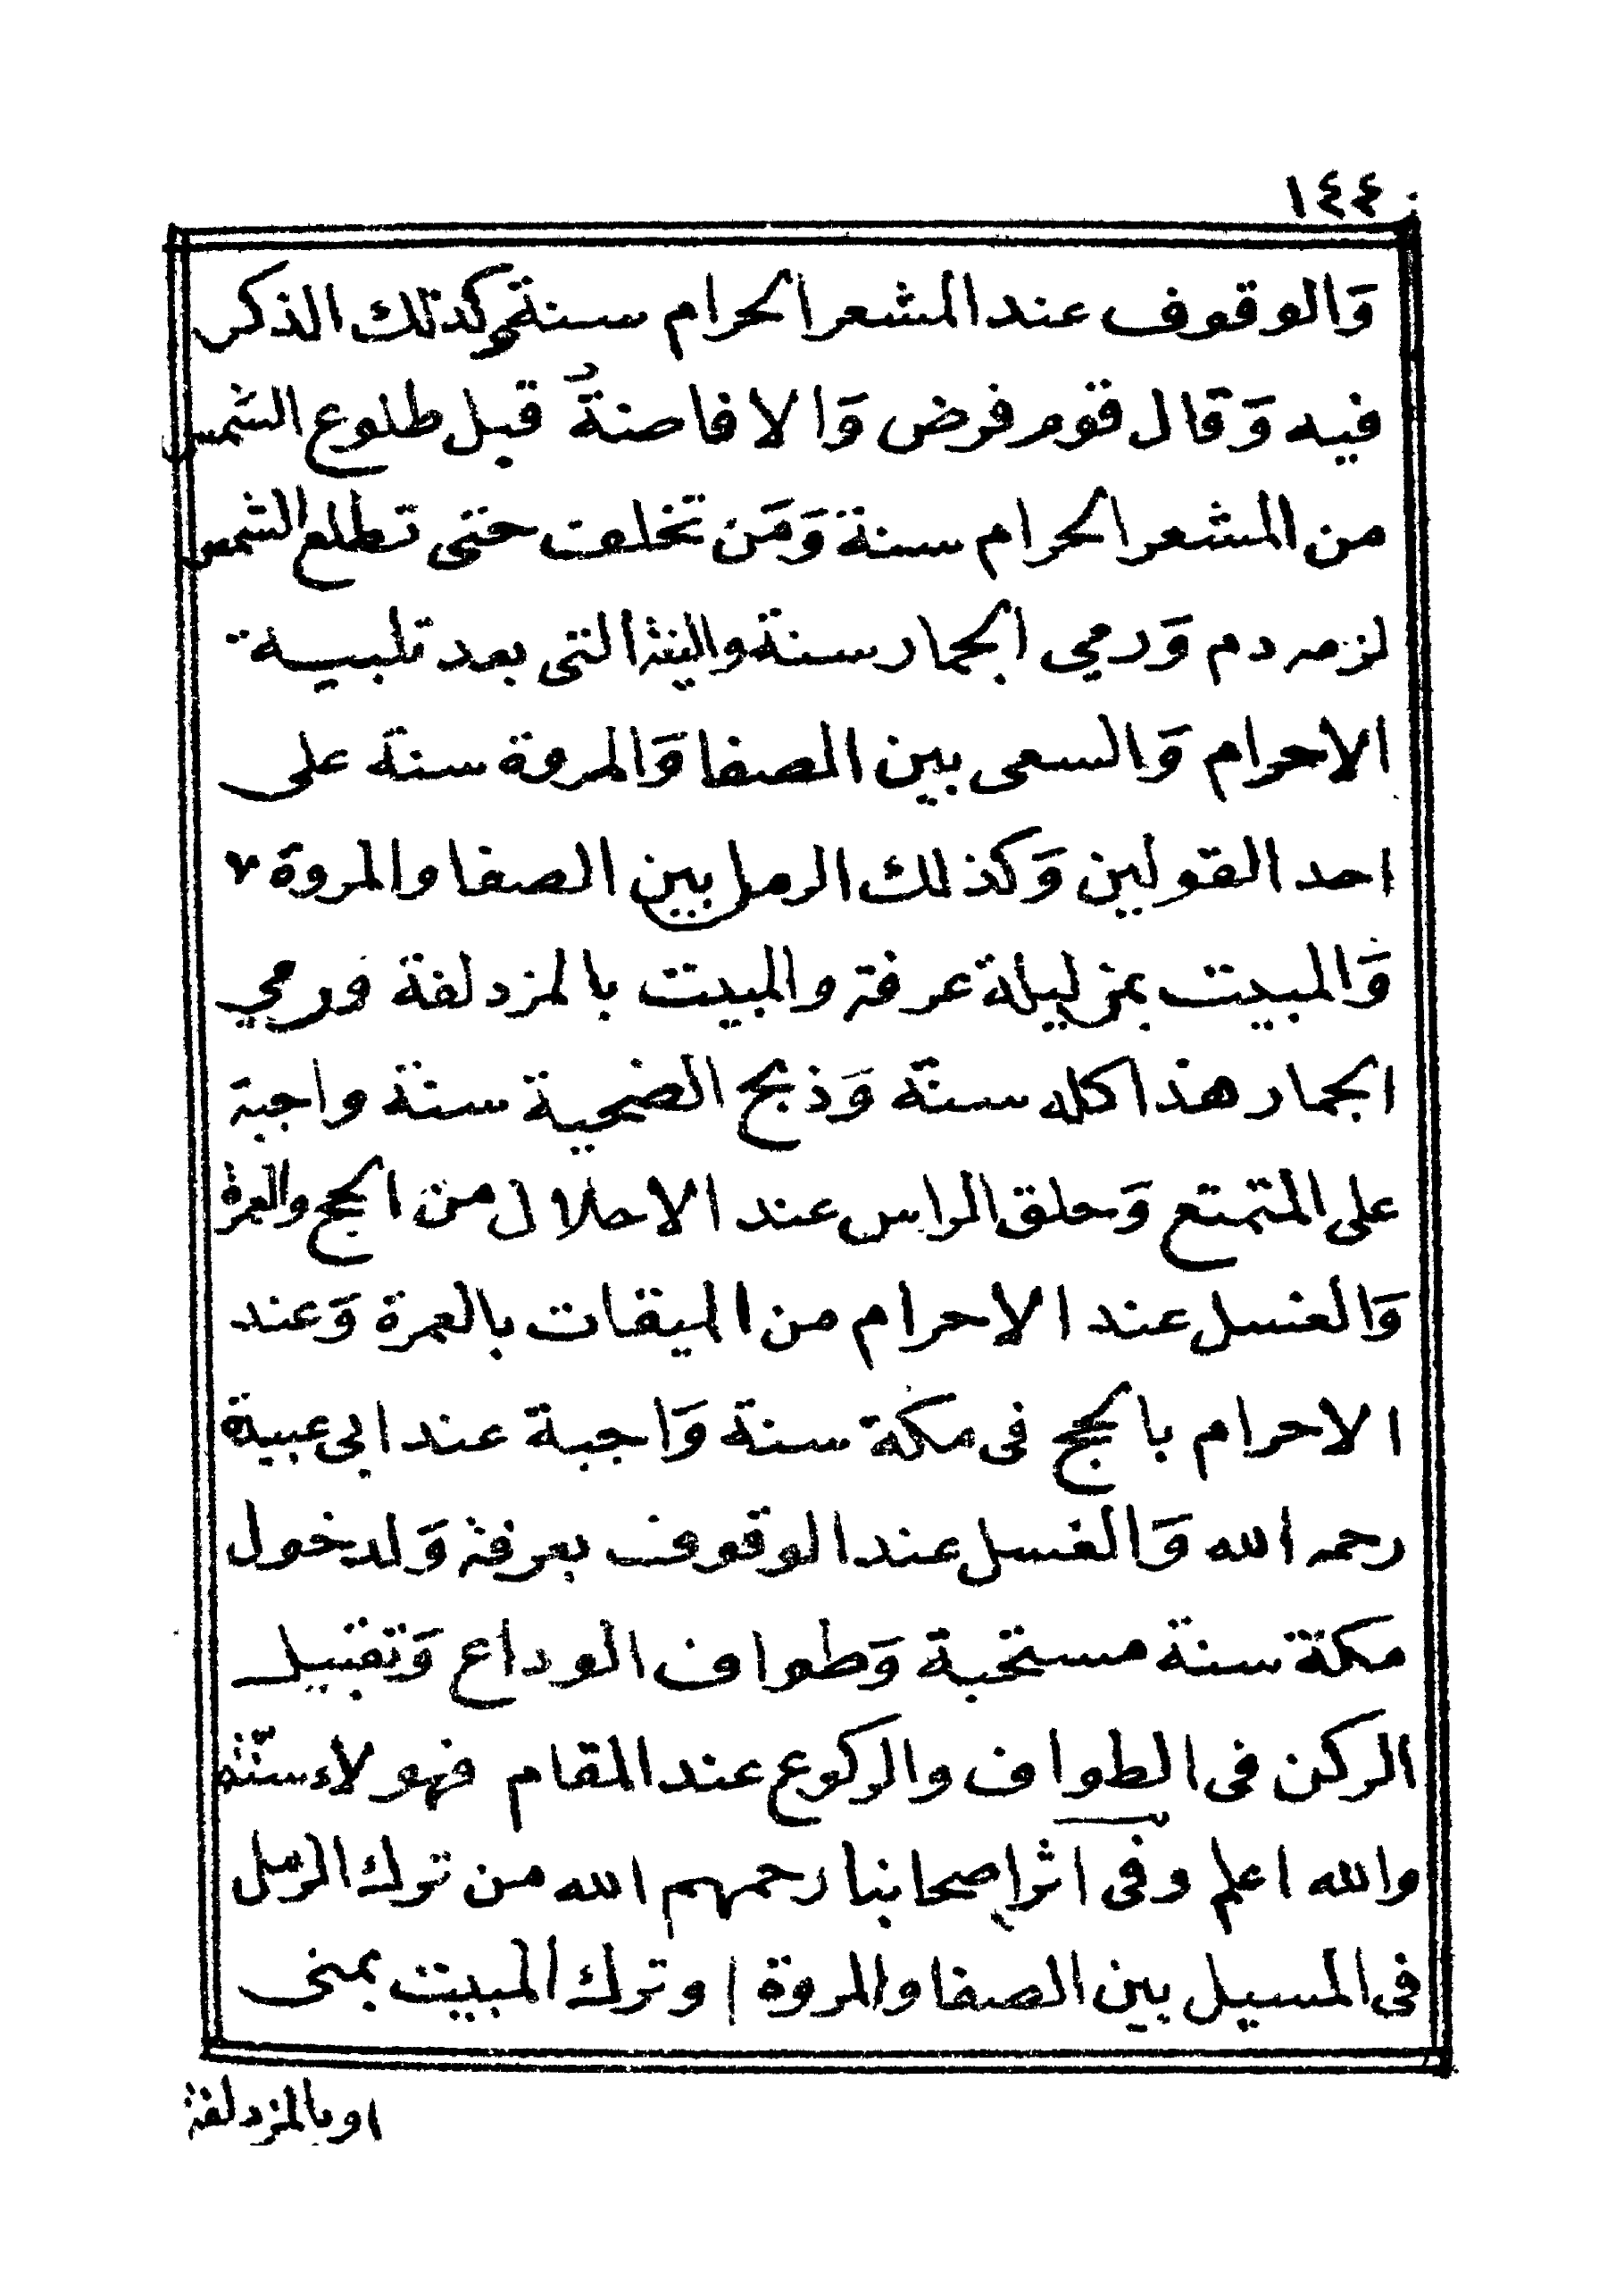 ١٤٤
وَالوقوف عند المشعر الحرام سنة وكذلك الذكر
فيه وَقال قوم فرض وَالافاضةُ قبل طلوع الشمس
من المشعر الحرام سنة وَمَن تخلف حتى تطلع الشمس
لزمه دم وَرمي الجمار سنة والتى بعد تلبية
الاحرام وَالسعى بين الصفا وَالمروة سنة على
احد القولين وَكذلك الرمل بين الصفا والمروة
وَالمبيت بمنى ليلة عرفة والمبيت بالمزدلفة ورمي
الجمار هذا كله سنة وَذبح الضحية سنة واجبة
على المتمتع وَحلق الراس عند الاحلال من الحج والعمرة
وَالغسل عند الاحرام من الميقات بالعمرة وَعند
الاحرام بالحج فى مكة سنة وَاجبة عند ابى عبيدة
رحمه الله وَالغسل عند الوقوف بعرفة وَلدخول
مكة سنة مستحبة وَطواف الوداع وَتقبيل
الركن فى الطواف والركوع عند المقام فهولاء سنّة
والله اعلم وفى اثر اصحابنا رحمهم الله من ترك الرمل
فى المسيل بين الصفا والمروة او ترك المبيت بمنى
او بالمزدلفة